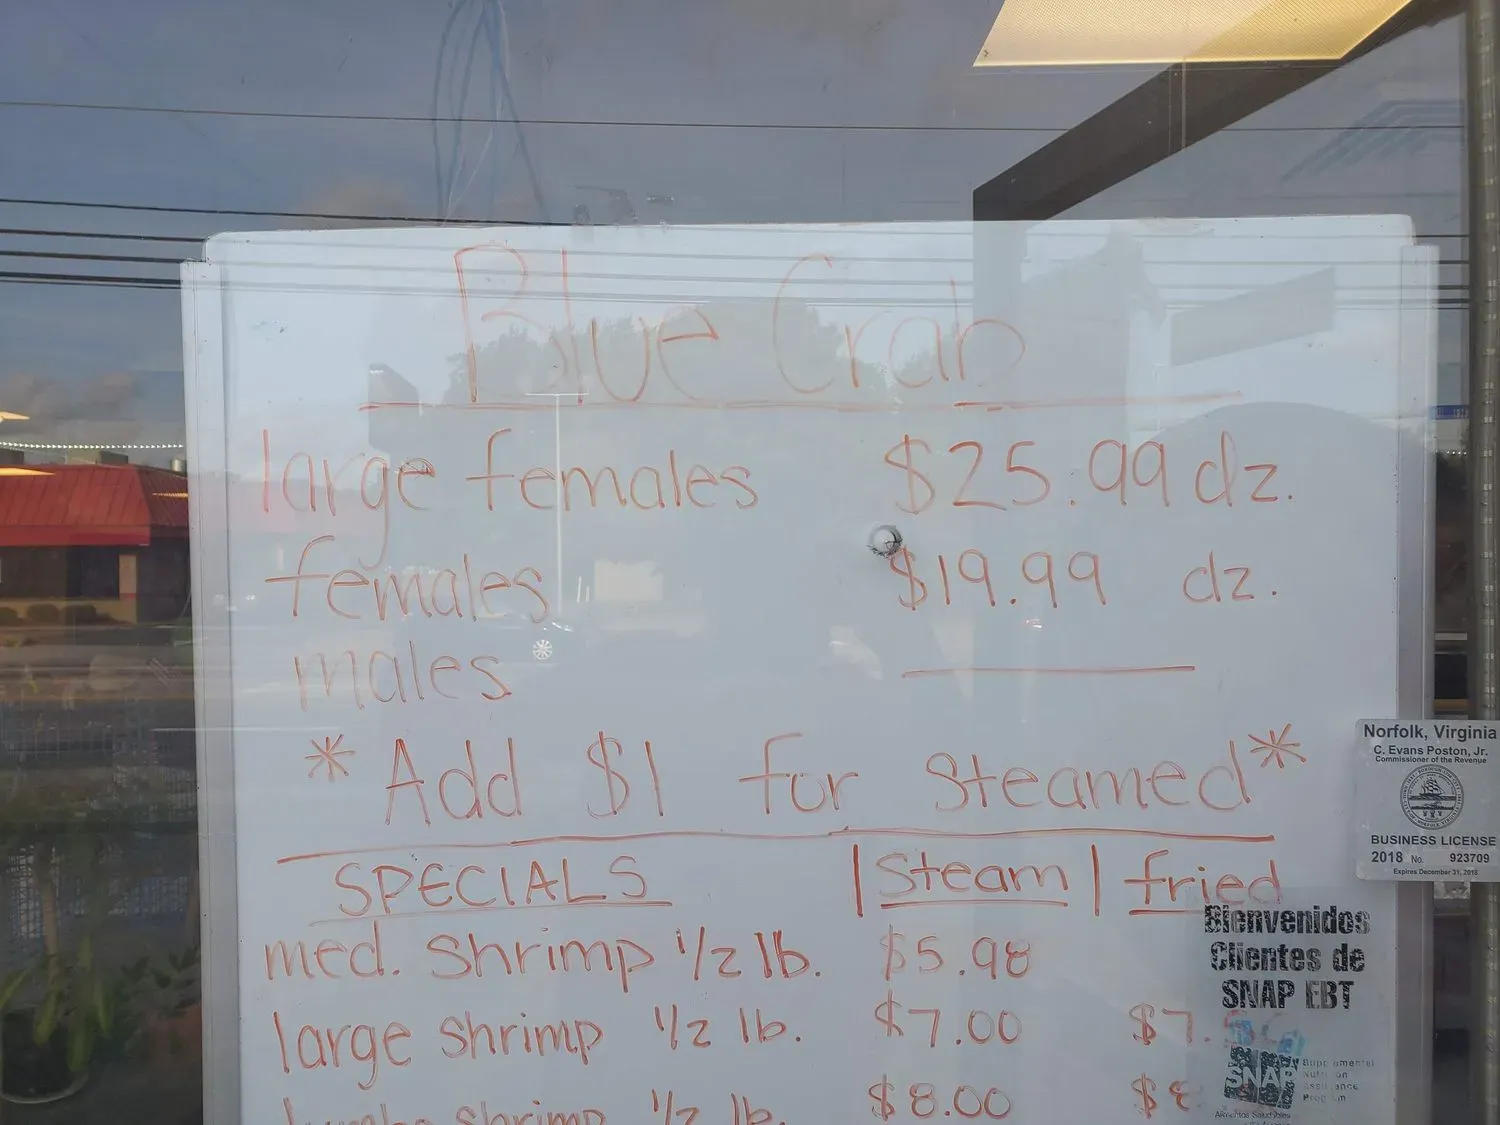 Blue Crab
large females $25.99 dz.
females $19.99 dz.
males
*Add $1 for Steamed*
SPECIALS | Steam | fried
med. shrimp 1/2 lb. $5.98
large shrimp 1/2 lb. $7.00 $7.
shrimp 1/2 lb. $8.00 $8
Norfolk, Virginia
C. Evans Poston, Jr.
Commissioner of the Revenue
BUSINESS LICENSE
2018 No. 923709
Expires December 31, 2018
Bienvenidos
Clientes de
SNAP EBT
SNAP